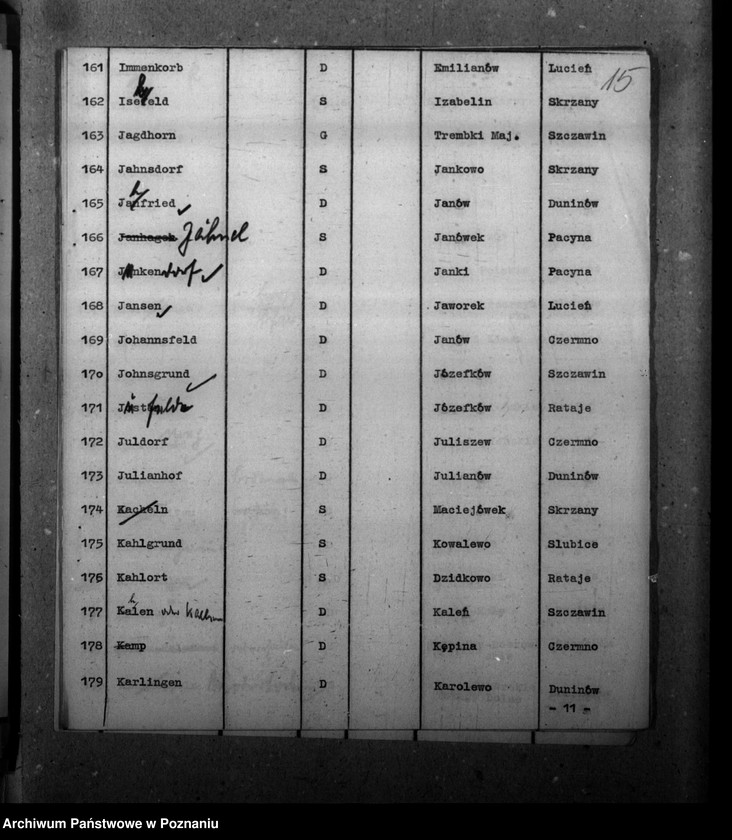 15
161 Immenkorb D Emilianów Lucień
162 Isefeld S Izabelin Skrzany
163 Jagdhorn G Trembki Maj. Szczawin
164 Jahnsdorf S Jankowo Skrzany
165 Janfried D Janów Duninów
166 Janhagen Jähnel S Janówek Pacyna
167 Jankendorf D Janki Pacyna
168 Jansen D Jaworek Lucień
169 Johannsfeld D Janów Czermno
170 Johnsgrund D Józefków Szczawin
171 D Józefków Rataje
172 Juldorf D Juliszew Czermno
173 Julianhof D Julianów Duninów
174 Kacheln S Maciejówek Skrzany
175 Kahlgrund S Kowalewo Slubice
176 Kahlort S Dzidkowo Rataje
177 Kalen D Kaleń Szczawin
178 Kamp D Kępina Czermno
179 Karlingen D Karolewo Duninów
- 11 -
Archiwum Państwowe w Poznaniu